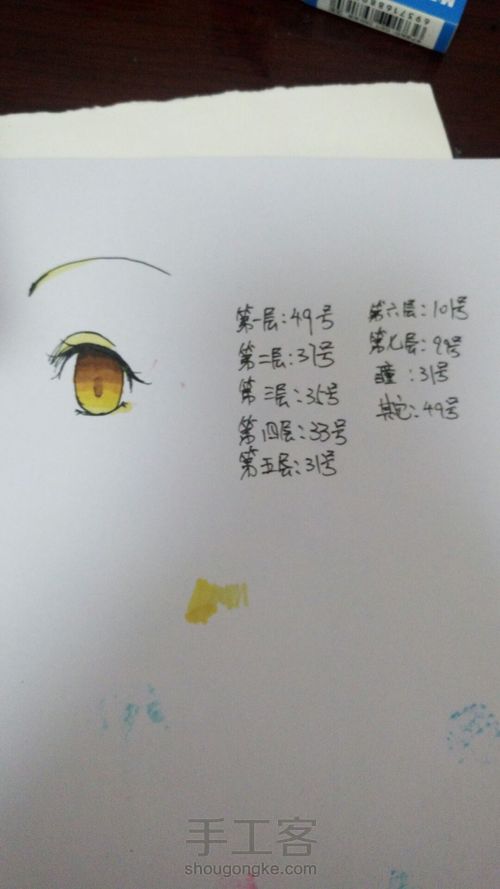 第一层:49号
第二层:37号
第三层:35号
第四层:33号
第五层:31号
第六层:101号
第七层:99号
瞳:31号
其它:49号
手工客
shougongke.com